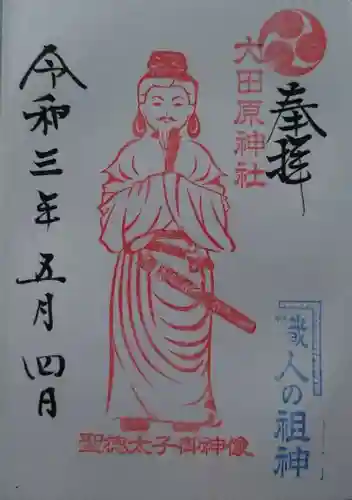 奉拝
大田原神社
令和三年五月四日
職人の祖神
聖徳太子御神像